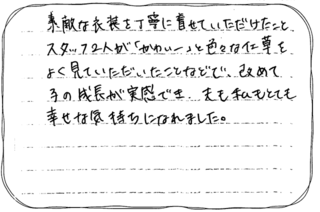 素敵な衣装を丁寧に着せていただけたこと
スタッフ2人が「かわいー」と色々な仕草を
よく見ていただいたことなどで、改めて
子の成長が実感でき、夫も私もとても
幸せな気持ちになれました。